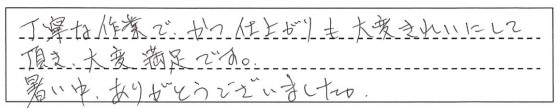 丁寧な作業で、かつ仕上がりも大変きれいにして
頂き、大変満足です。
暑い中、ありがとうございました。